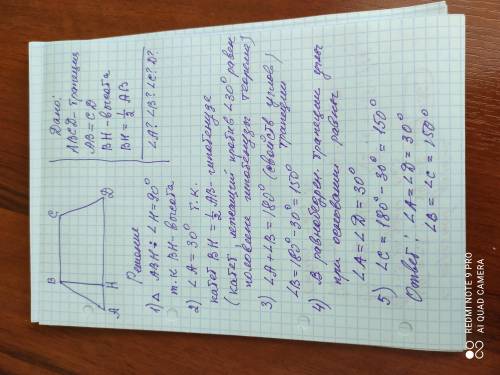 Дано:
ABCD - трапеция
AB = CD
BH - высота
BH = 1/2 AB
∠A? ∠B? ∠C? ∠D?
B C
A H D
Решение
1) △ ABH: ∠H=90°
т.к BH- высота
2) ∠A = 30° т.к.
катет BH = 1/2 AB- гипотенузе
(катет, лежащий против ∠30° равен
половине гипотенузы теорема)
3) ∠A+∠B = 180° (свойств углов
трапеции)
∠B=180°-30°=150°
4) В равнобедрен. трапеции углы
при основании равны
∠A=∠D=30°
5) ∠C = 180°-30° = 150°
Ответ: ∠A=∠D=30°
∠B=∠C=150°
REDMI NOTE 9 PRO
AI QUAD CAMERA